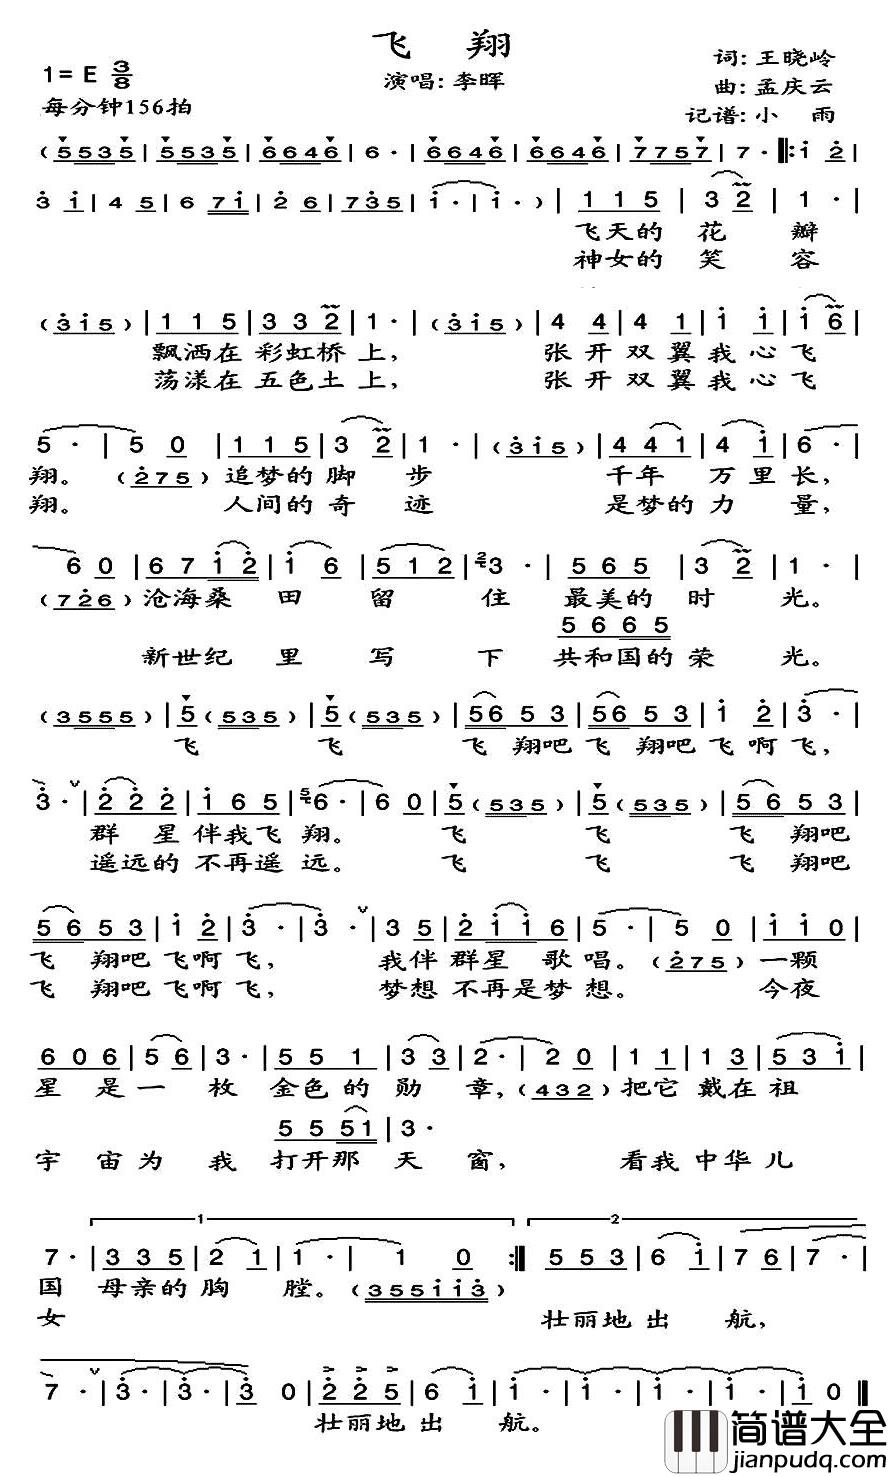 飞 翔
1= E 3/8
演唱: 李晖
词: 王晓岭
每分钟156拍
曲: 孟庆云
记谱: 小 雨
( 5535 | 5535 | 6646 | 6· | 6646 | 6646 | 7757 | 7· ‖: i 2 |
3 i | 4 5 | 6 7i | 2 6 | 735 | i· | i· ) | 1 1 5 | 3 2 | 1· |
飞天的 花 瓣
神女的 笑 容
(3i5) | 1 1 5 | 3 3 2 | 1· | (3i5) | 4 4 | 4 1 | i i | i 6 |
飘洒在 彩虹桥 上, 张开 双翼 我心飞
荡漾在 五色土 上, 张开 双翼 我心飞
5· | 5 0 | 1 1 5 | 3 2 | 1· | (3i5) | 4 4 1 | 4 i | 6· |
翔。 (275) 追梦的 脚 步 千年 万里长,
翔。 人间的 奇 迹 是梦的 力 量,
6 0 | 6 7 i2 | i 6 | 5 1 2 | 3· | 5 6 5 | 3 2 | 1· |
(726) 沧海桑 田 留 住 最美的 时 光。
5 6 6 5
新世纪 里 写 下 共和国的 荣 光。
(3555) | 5 (535) | 5 (535) | 56 5 3 | 56 5 3 | i 2 | 3· |
飞 飞 飞 翔吧 飞 翔吧 飞啊 飞,
3· | 2 2 2 | i 6 5 | 6· | 6 0 | 5 (535) | 5 (535) | 56 5 3 |
群 星 伴我飞 翔。 飞 飞 飞 翔吧
遥远的 不再遥 远。 飞 飞 飞 翔吧
56 5 3 | i 2 | 3· | 3· | 3 5 | 2 i i 6 | 5· | 5 0 | i i 0 |
飞 翔吧 飞啊 飞, 我伴 群星 歌 唱。 (275) 一颗
飞 翔吧 飞啊 飞, 梦想 不再是梦 想。 今夜
6 0 6 | 5 6 | 3· | 5 5 1 | 3 3 | 2· | 2 0 | 1 1 | 1 3 | 5 3 i |
星 是一 枚 金色的 勋 章, (432) 把它 戴在 祖
5 5 51 | 3·
宇 宙为 我 打开那 天 窗, 看我 中华儿
1 2
7· | 3 3 5 | 2 1 | 1· | 1 0 :‖ 5 5 3 | 6 i | 7 6 | 7· |
国 母亲的 胸 膛。 (355ii3)
女 壮丽地 出 航,
7· | 3· | 3· | 3 0 | 2 2 5 | 6 i | i· | i· | i· | i· | i 0 ‖
壮丽地 出 航。
简谱大全
jianpudq.com